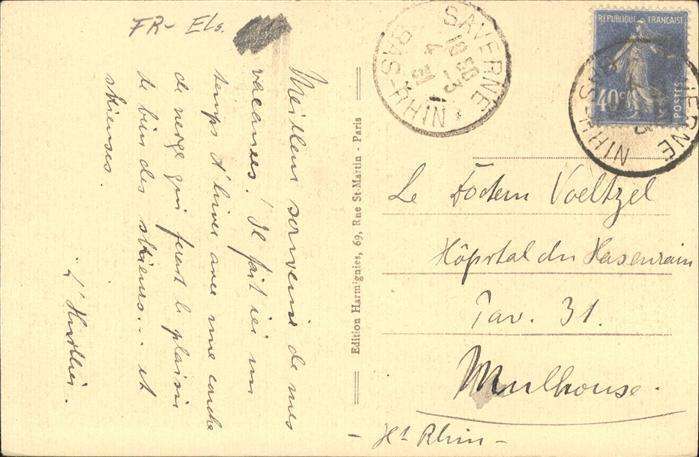 FR- Els.
Meilleur souvenir de mes
vacances! Il fait ici un
temps d'hiver avec une couche
de neige qui feront le plaisir
de bien des skieurs... et
skieuses.
SAVERNE
BAS-RHIN
18 30
4 -3
REPUBLIQUE FRANÇAISE
POSTES
40c
BAS-RHIN
Edition Harmignies, 69, Rue St-Martin - Paris
Le Docteur Voeltzel
Hôpital du Hasenrain
Pav. 31.
Mulhouse.
Ht Rhin -